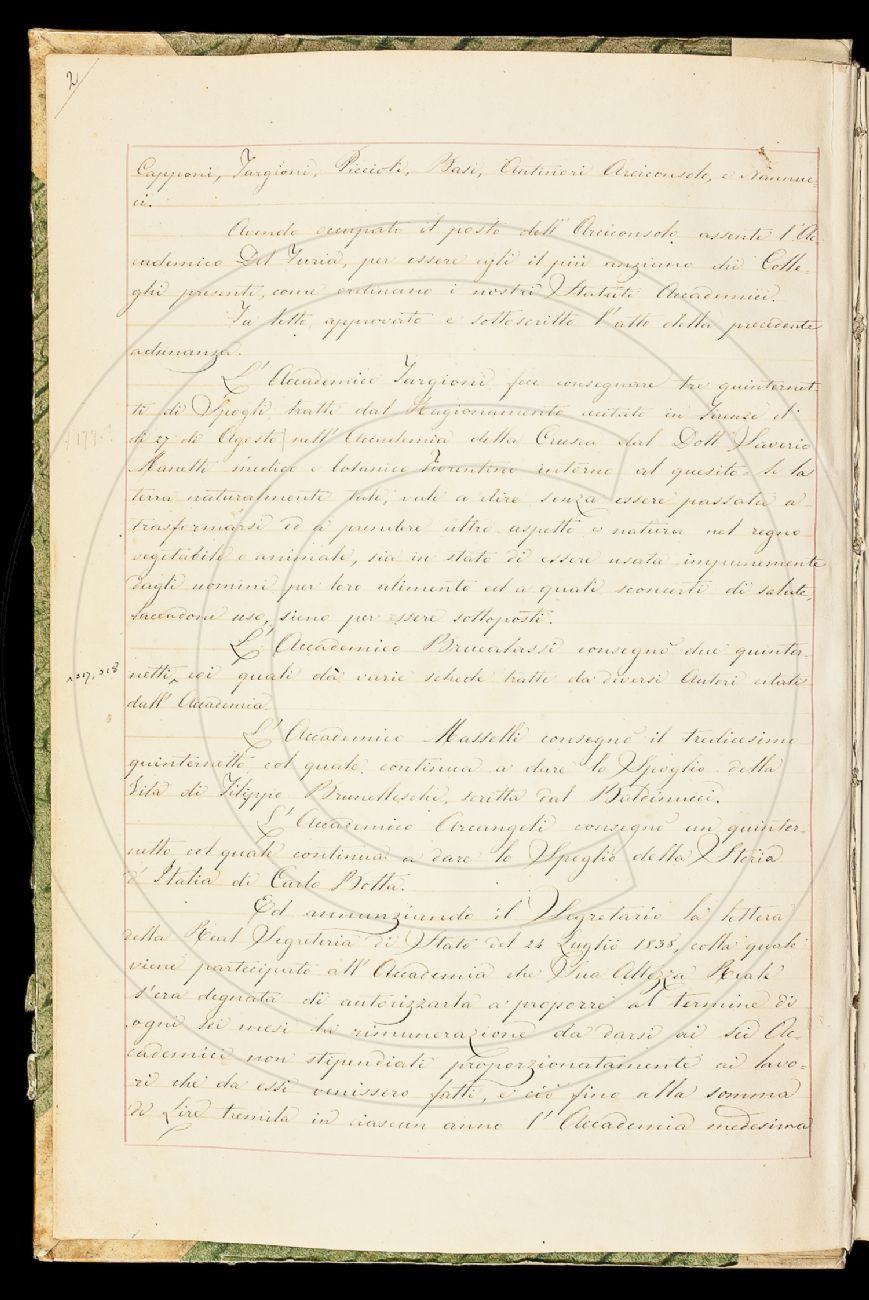 2
Capponi, Targioni, Piccioli, Basi, Antinori Arciconsolo, e Nannuc-
ci.
Avendo occupato il posto dell' Arciconsolo assente l'Ac-
cademico Del Furia, per essere egli il più anziano dei Colle-
ghi presenti, come ordinano i nostri Statuti Accademici.
Fu letto, approvato e sottoscritto l'atto della precedente
adunanza.
L' Accademico Targioni fece consegnare tre quinternet-
ti di Spogli tratti dal Ragionamento recitato in Firenze il
dì 27 di Agosto nell' Accademia della Crusca dal Dott. Saverio
Manetti medico e botanico Fiorentino intorno al quesito = Se la
terra naturalmente tale, vale a dire senza essere passata a
trasformarsi ed a prendere altro aspetto e natura nel regno
vegetabile o animale, sia in stato di essere usata impunemente
dagli uomini per loro alimento ed a quali sconcerti di salute,
facendone uso, sieno per essere sottoposti.
L' Accademico Brucalassi consegnò due quinter-
n. 217, 218
netti coi quali dà varie schede tratte da diversi Autori citati
dall' Accademia.
L' Accademico Masselli consegnò il tredicesimo
quinternetto col quale continua a dare lo Spoglio della
Vita di Filippo Brunelleschi, scritta dal Baldinucci.
L' Accademico Arcangeli consegnò un quinter-
netto col quale continua a dare lo Spoglio della Storia
d' Italia di Carlo Botta.
Ed annunziando il Segretario la lettera
della Real Segreteria di Stato del 24 Luglio 1838, colla quale
viene partecipato all' Accademia che Sua Altezza Reale
s'era degnata di autorizzarla a proporre al termine di
ogni sei mesi la rimunerazione da darsi ai sei Ac-
cademici non stipendiati proporzionatamente ai lavo-
ri che da essi venissero fatti, e ciò fino alla somma
di Lire tremila in ciascun anno l' Accademia medesima